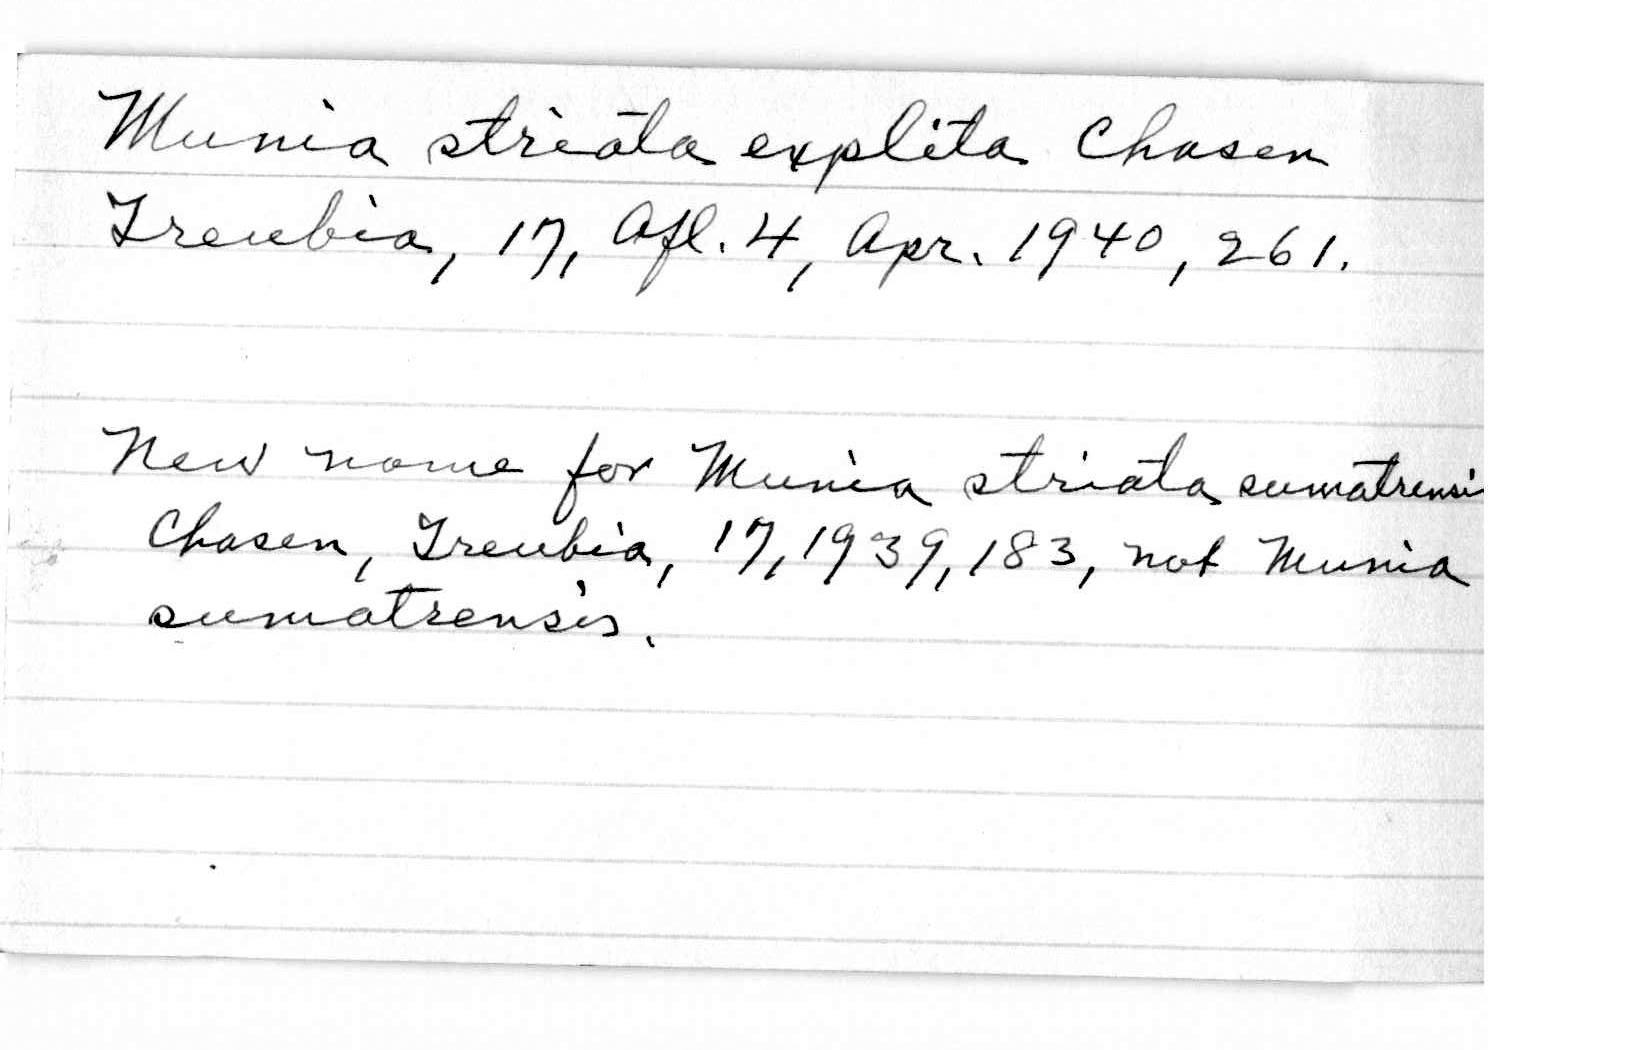 Munia striata explita Chasen
Treubia, 17, Afl. 4, Apr. 1940, 261.
New name for Munia striata sumatrensi
Chasen, Treubia, 17, 1939, 183, not Munia
sumatrensis.